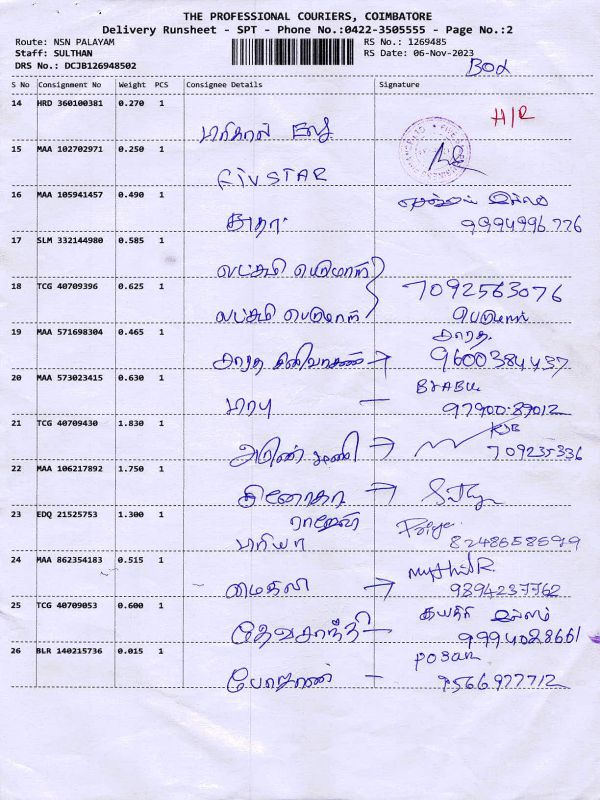 THE PROFESSIONAL COURIERS, COIMBATORE
Delivery Runsheet - SPT - Phone No.:0422-3505555 - Page No.:2
Route: NSN PALAYAM RS No.: 1269485
Staff: SULTHAN RS Date: 06-Nov-2023
DRS No.: DCJB126948502
S No Consignment No Weight PCS Consignee Details Signature
14 HRD 360100381 0.270 1
H/R
15 MAA 102702971 0.250 1
FIVSTAR
16 MAA 105941457 0.490 1
9994996776
17 SLM 332144980 0.585 1
லட்சுமி பெருமாள்
18 TCG 40709396 0.625 1 7092563076
லட்சுமி பெருமாள் பெருமாள்
19 MAA 571698304 0.465 1 சாரதா
சாரதா சீனிவாசன் 9600384437
20 MAA 573023415 0.630 1
பிரபு 97900-89012
21 TCG 40709430 1.830 1
709235336
22 MAA 106217892 1.750 1
வினோதா
23 EDQ 21525753 1.300 1 ராஜேஷ் Priya
பிரியா 8248658599
24 MAA 862354183 0.515 1
மைதிலி 9894237762
25 TCG 40709053 0.600 1
தேவசாந்தி 9994028661
26 BLR 140215736 0.015 1
போஜன் 9566977712